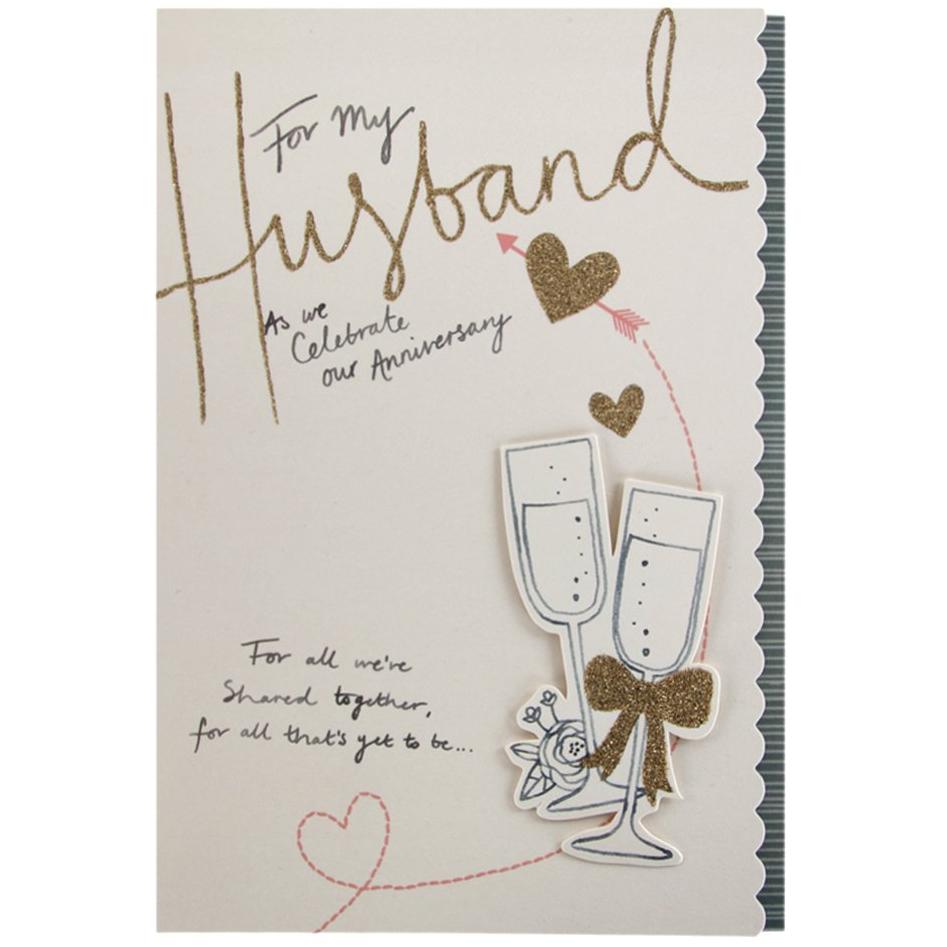 For My
Husband
As we
Celebrate
our Anniversary
For all we're
Shared together,
for all that's yet to be...